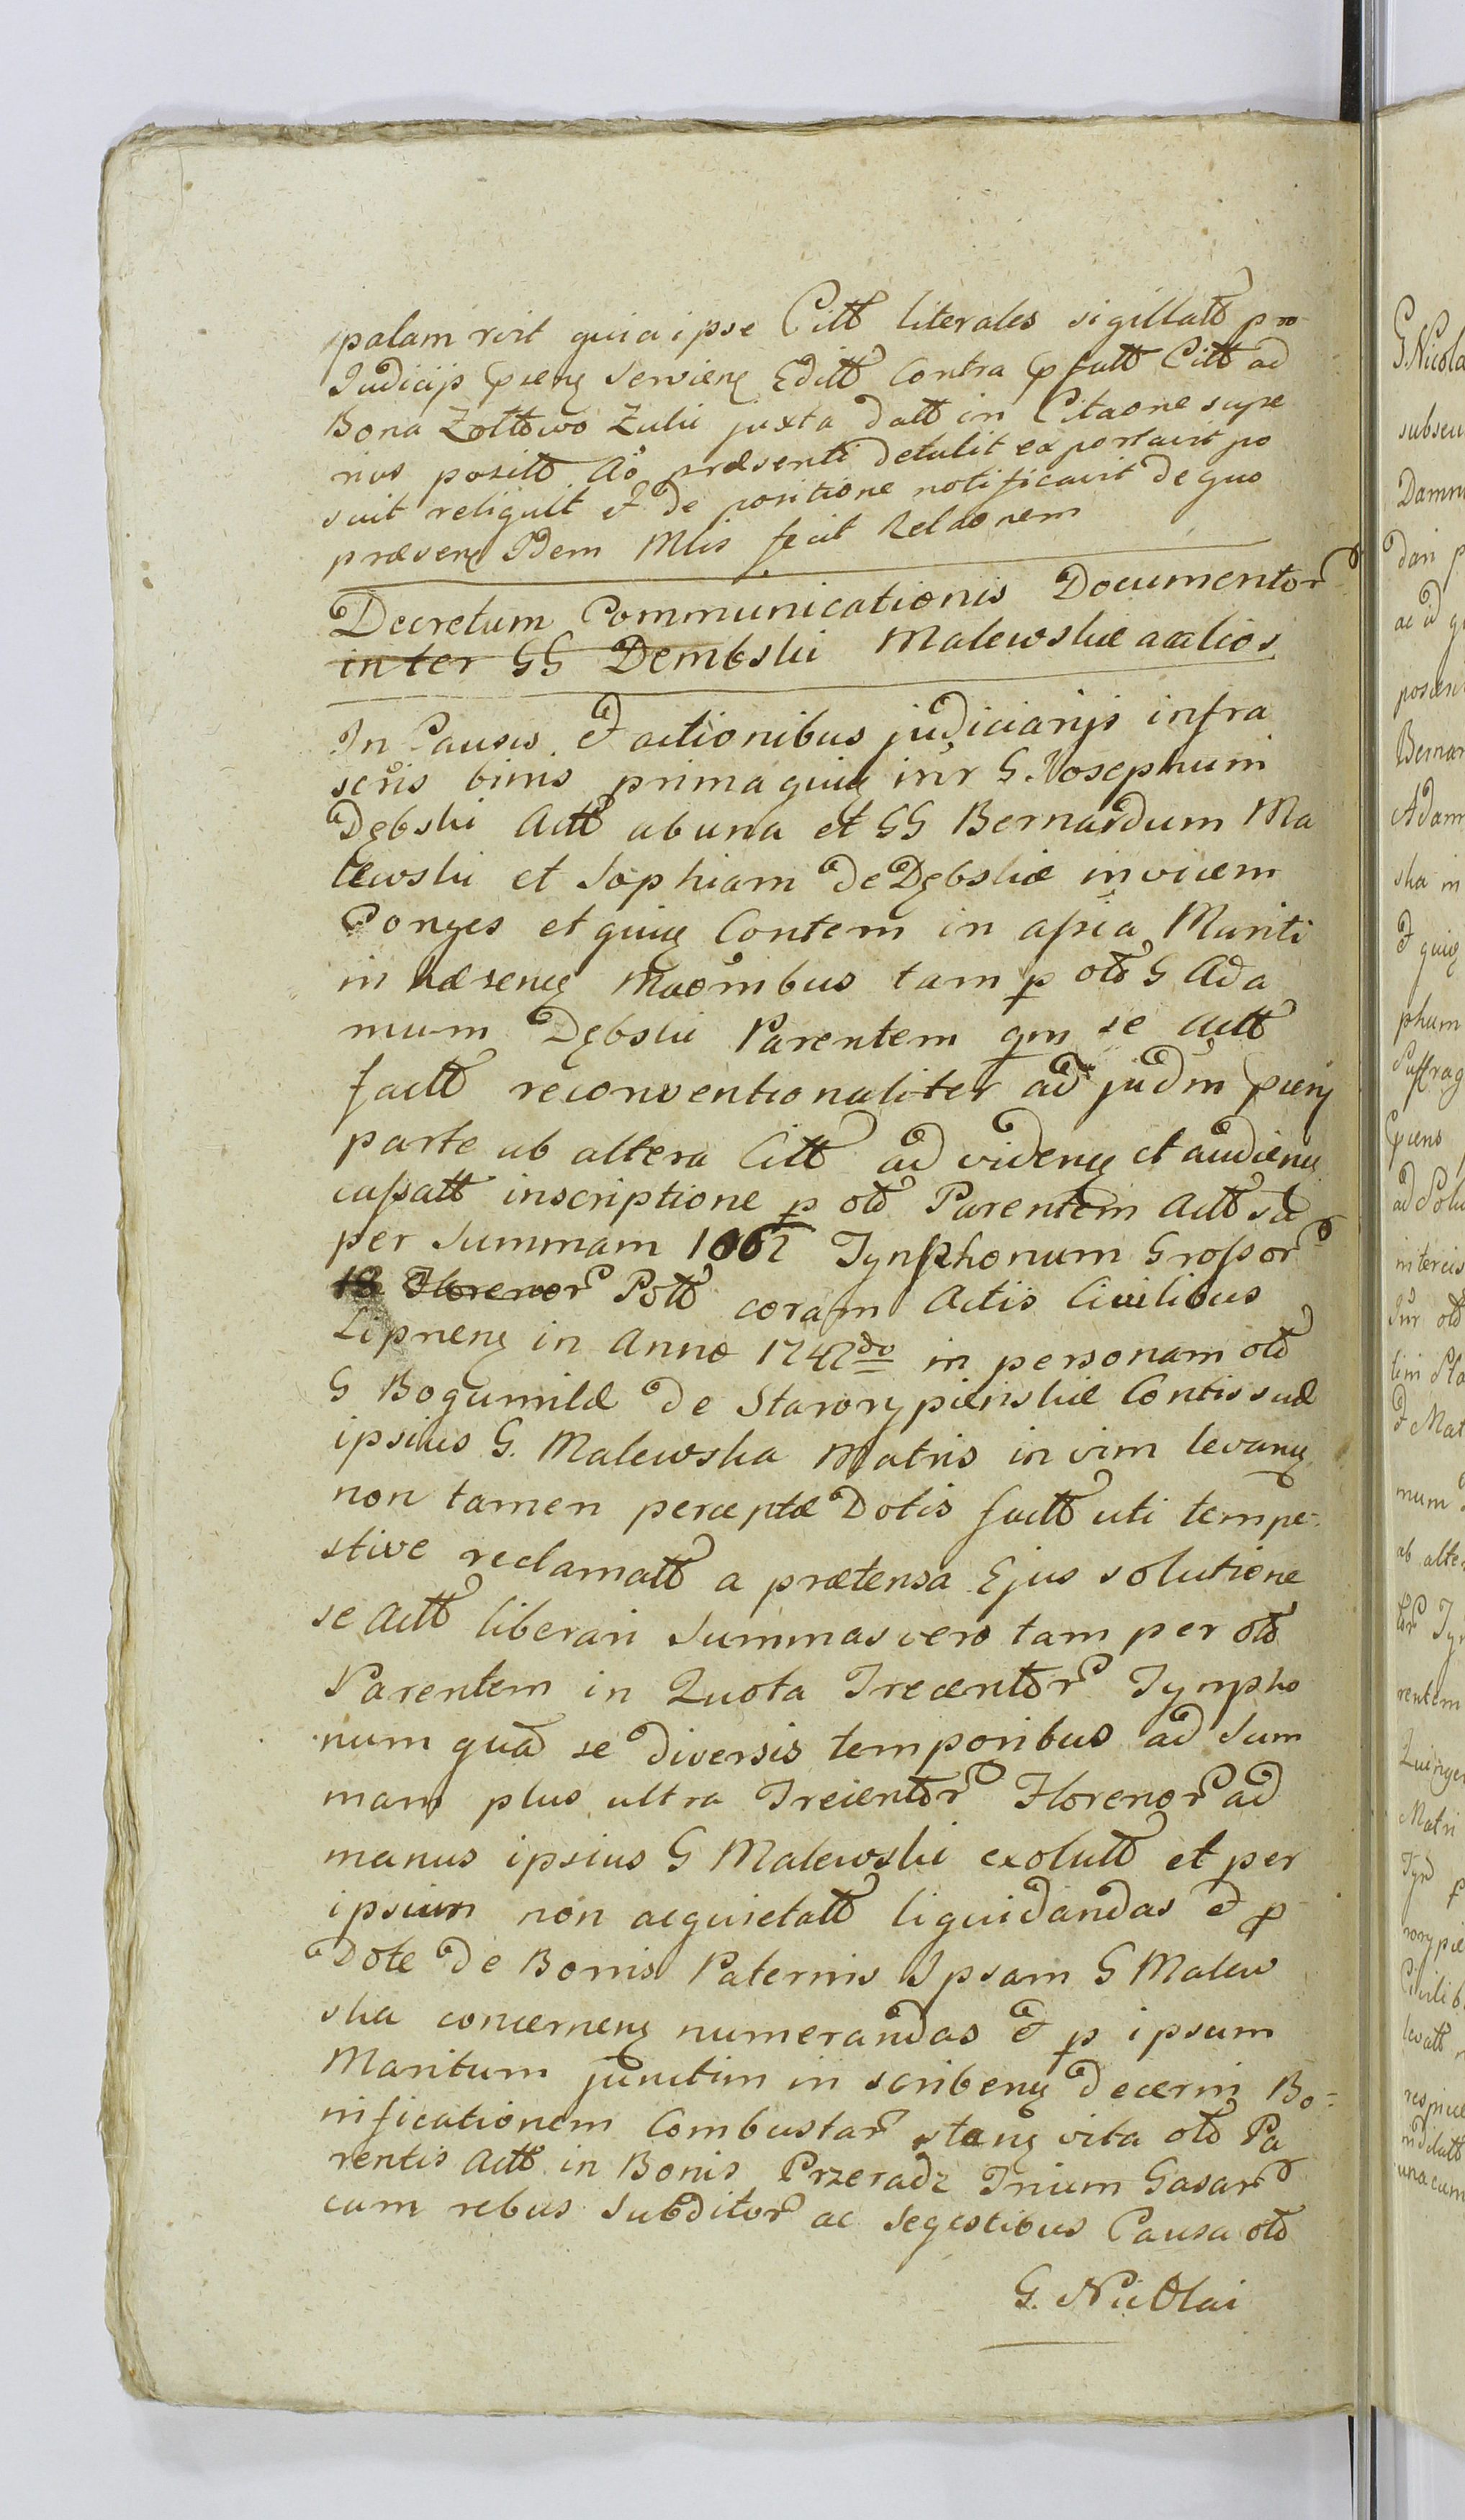 palam rvit quia ipse Citt literales sigillatt pro
Judicijs pseng serviens Editt Contra pfatt Citt ad
Bona Zołtowo Zulii juxta datt in Citaone supe
rius positt Ao præsenti detulit exportavit po
suit reliquit et de positione notificavit de quo
præseng Idem Mlis fecit Relaonem
Decretum Communicationis Documentor
inter GG Dembski Malewskie aaliós
In Causis et actionibus judiciarijs infra
scris binis prima quidg inr G. Josephum
Dębski Actt ab una et GG Bernardum Ma
lewski et Sophiam de Dębskie invicem
Conges et quidg Contem in assia Mariti
in hæseng Maombus tam p otd G Ada
mum Dębski Parentem qm se Actt
factt reconventionaliter ad judm pseng
parte ab altera Citt ad videng et audieng
cassatt inscriptione p otd Parentem Actt sd
per Summam 1062 Tynphonum Grossor
18 Florenor Pott coram Actis Civilibus
Lipneng in Anno 1742do in personam otd
G Bogumilæ de Starorypienskie Contis suæ
ipsius G. Malewska Matris in vim levang
non tamen perceptæ Dotis factt uti tempe-
stive reclamatt a prætensa Ejus solutione
se Actt liberari Summas vero tam per otd
Parentem in Quota Trecentor Tynpho
num quad se diversis temporibus ad Sum
mam plus ultra Trecentor Florenor ad
manus ipsius G Malewski exolutt et per
ipsum non acquietatt liquidandas et p
Dote de Bonis Paternis Ipsam G Malew
ska concerneng numerandas et p ipsum
Maritum junctim inscribeng decerni Bo=
nificationem Combustar stang vita otd Pa
rentis Actt in Bonis Przeradz Trium Casar
cum rebus Subditor ac segestibus Causa otd
G. Nicolai
G. Nicola
subseu
Damn
dari p
ac id q
posien
Bernar
Adam
ska in
et quidg
phum
Suffrag
psens
ad Solu
intercis
Inr otd
lim Sta
et Mat
mum
ab alte
tor Ty
rentem
Quinge
Matri
rorypie
Civilib
levatt
respice
una cum